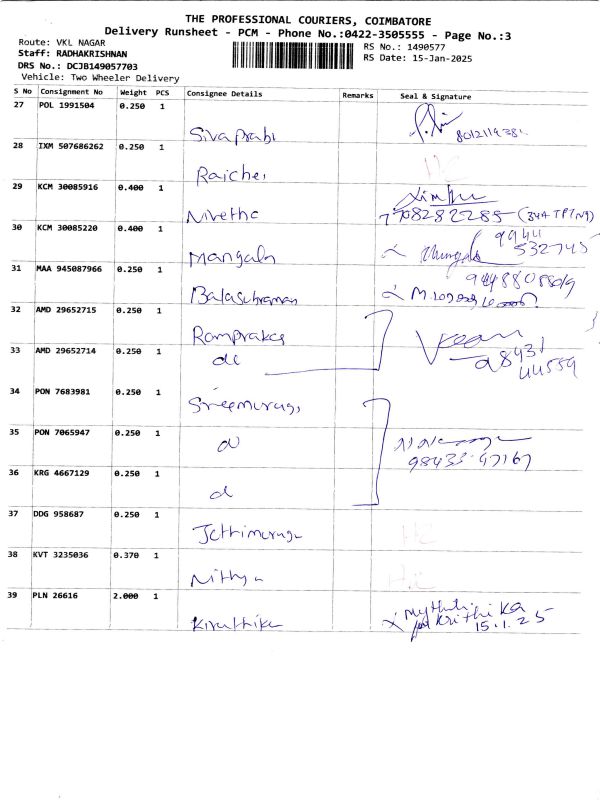 THE PROFESSIONAL COURIERS, COIMBATORE
Delivery Runsheet - PCM - Phone No.:0422-3505555 - Page No.:3
Route: VKL NAGAR
RS No.: 1490577
Staff: RADHAKRISHNAN
RS Date: 15-Jan-2025
DRS No.: DCJB149057703
Vehicle: Two Wheeler Delivery
S No Consignment No Weight PCS Consignee Details Remarks Seal & Signature
27 POL 1991504 0.250 1
Sivaprabi
28 IXM 507686262 0.250 1
Raicher
29 KCM 30085916 0.400 1
Nivetha 7708282285
30 KCM 30085220 0.400 1
Mangala 9944 532745
31 MAA 945087966 0.250 1
Balasubraman
32 AMD 29652715 0.250 1
Ramprakas
33 AMD 29652714 0.250 1
do 28431 44559
34 PON 7683981 0.250 1
Sreemuruga
35 PON 7065947 0.250 1
d 98433-47167
36 KRG 4667129 0.250 1
d
37 DDG 958687 0.250 1
Jothimuruga
38 KVT 3235036 0.370 1
Nithya H.C
39 PLN 26616 2.000 1
Kiruthika Mythili for Krithika 15.1.25